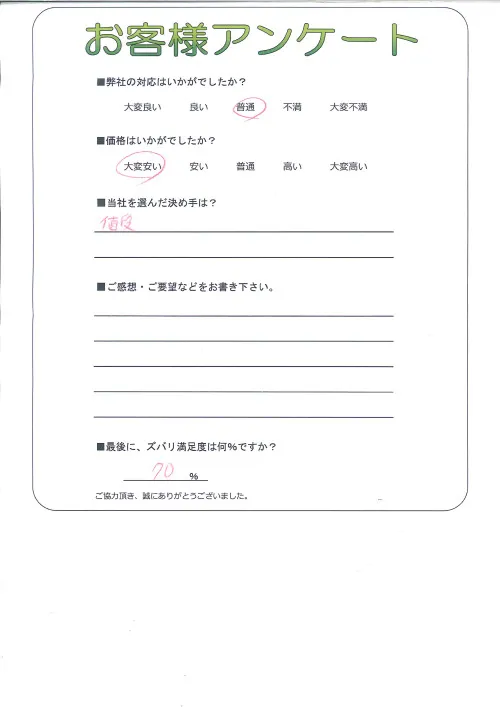 お客様アンケート
■弊社の対応はいかがでしたか？
大変良い 良い 普通 不満 大変不満
■価格はいかがでしたか？
大変安い 安い 普通 高い 大変高い
■当社を選んだ決め手は？
値段
■ご感想・ご要望などをお書き下さい。
■最後に、ズバリ満足度は何%ですか？
70 %
ご協力頂き、誠にありがとうございました。